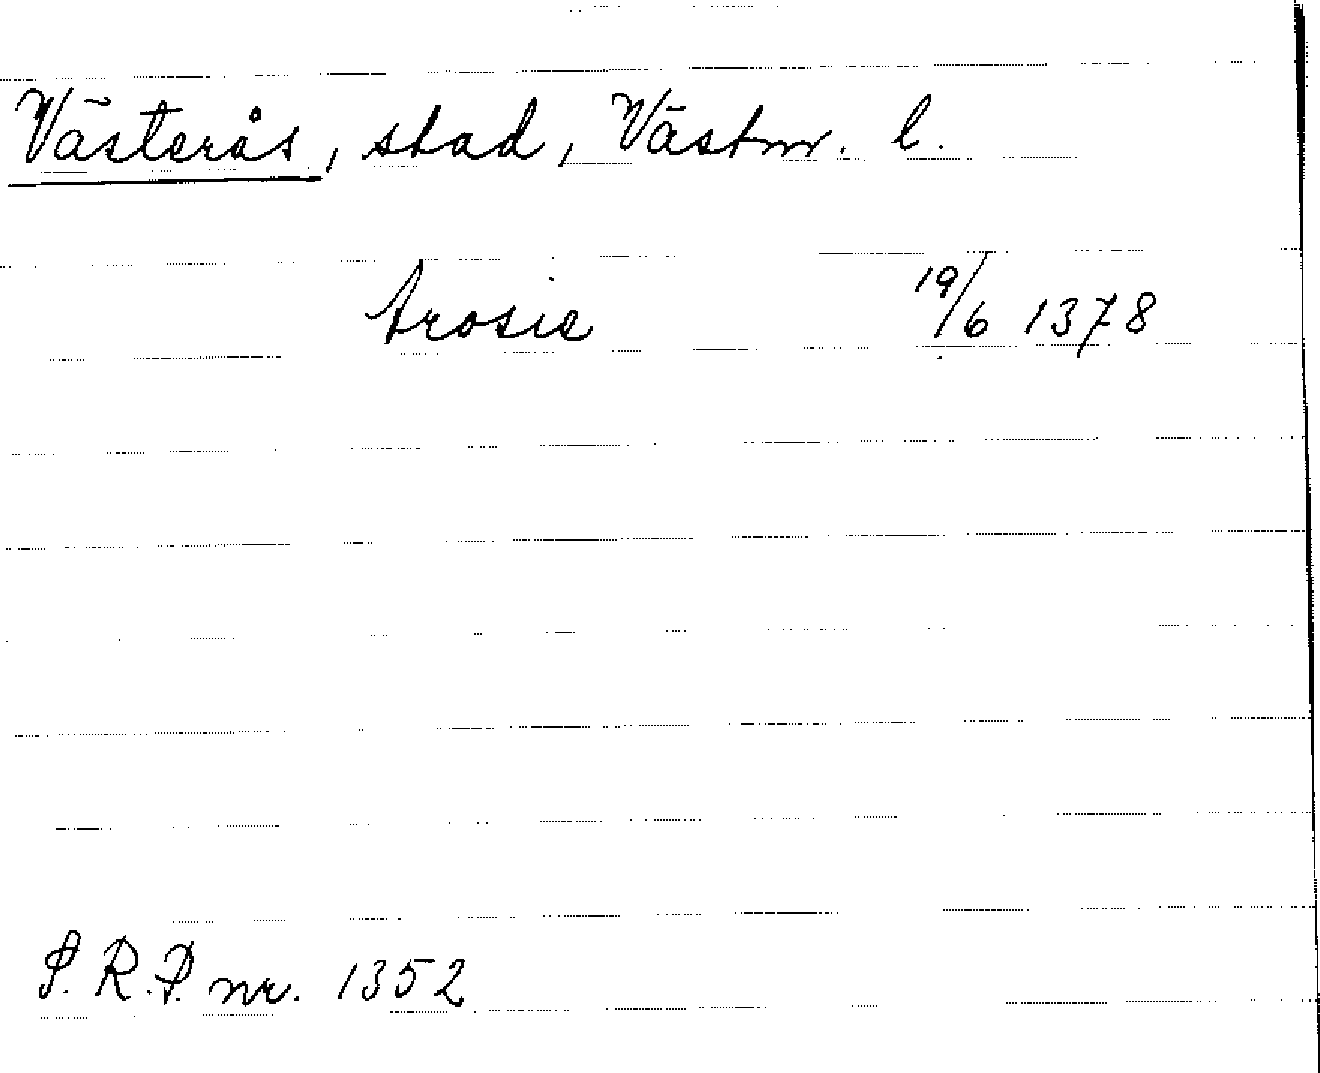 Västerås, stad, Västm. l.
Arosie 19/6 1378
S.R.P. nr. 1352